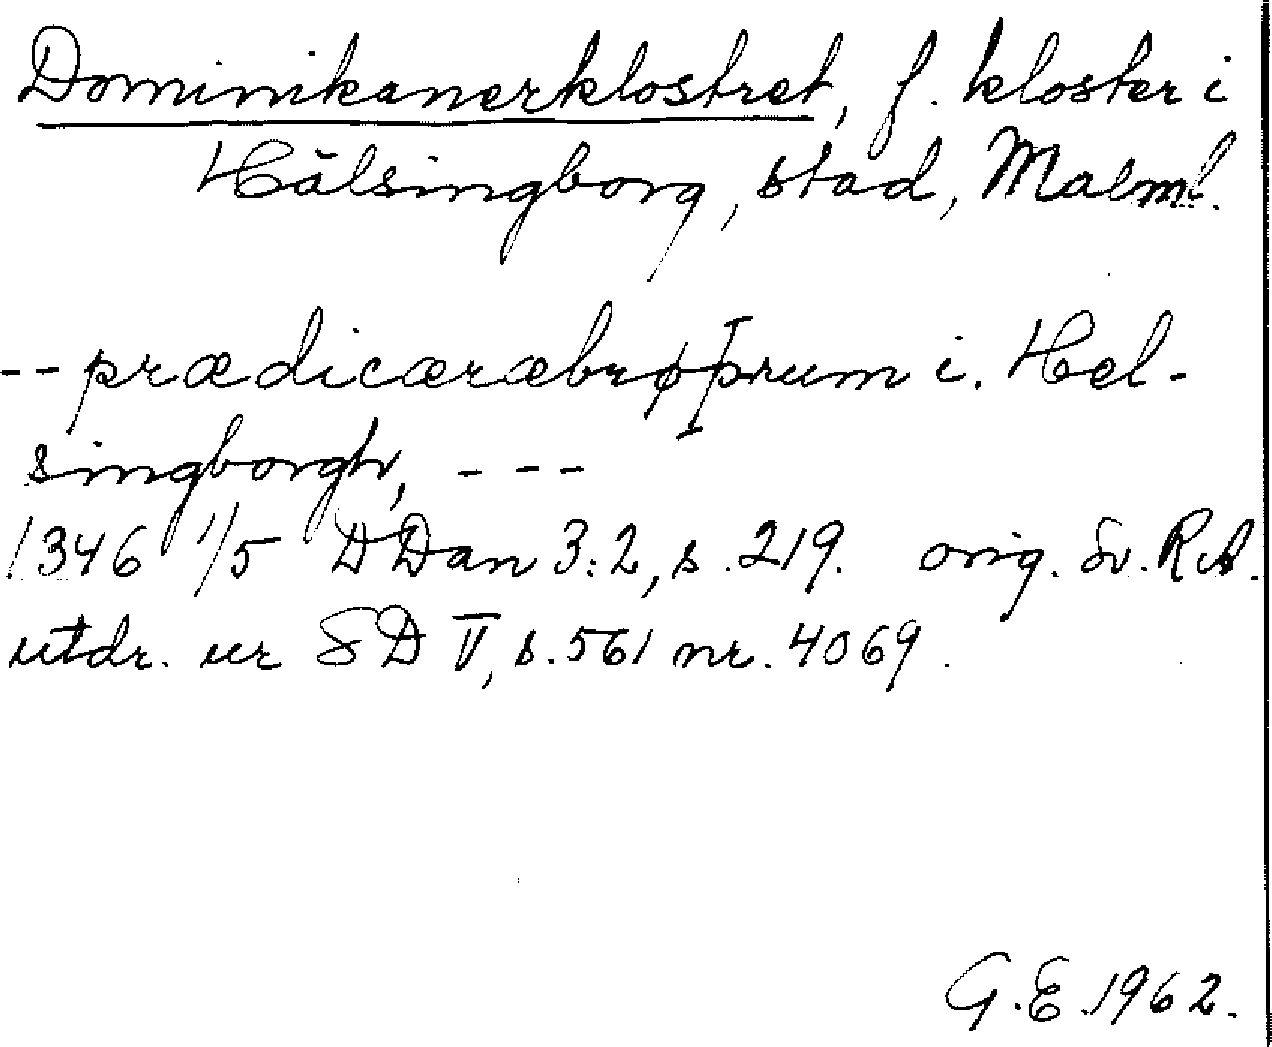 Dominikanerklostret, f. kloster i
Hälsingborg, stad, Malml.
-- prædicæræbrøþrum i. Hel-
singborgh, ---
1346 1/5 DDan 3:2, s. 219. orig. Sv. RA.
utdr. ur SD V, s. 561 nr. 4069.
G.E. 1962.